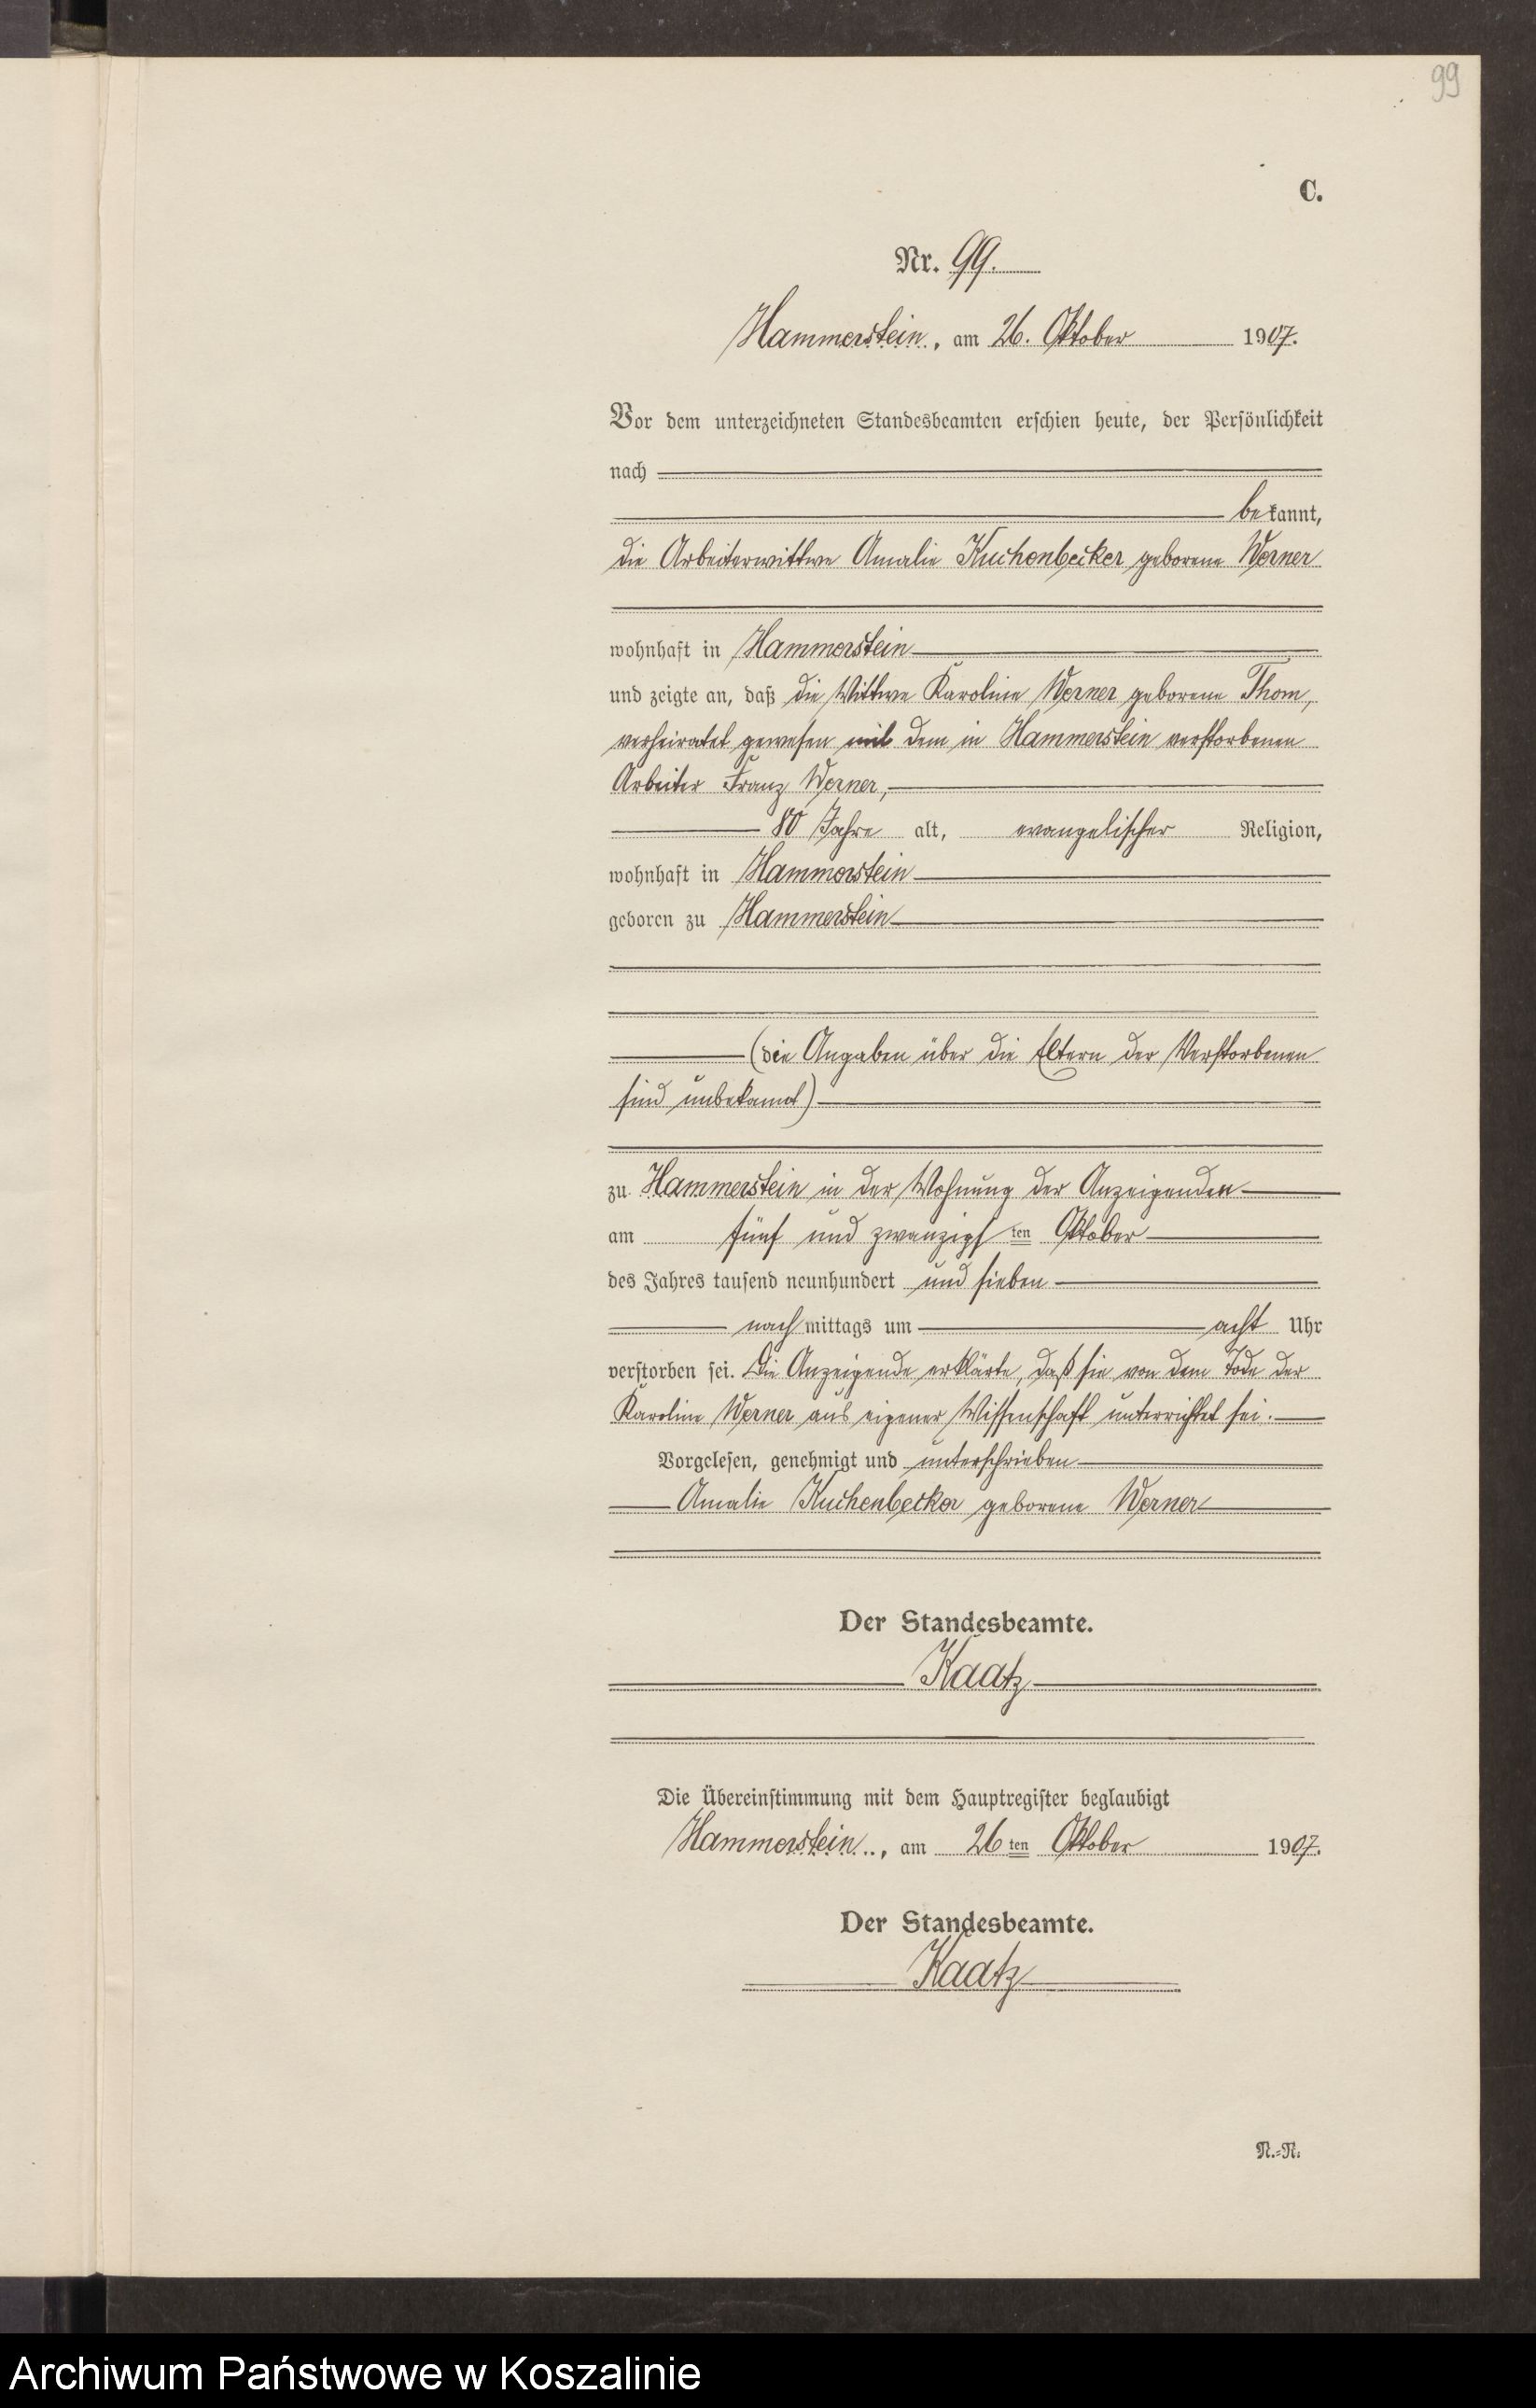 99
C.
Nr. 99.
Hammerstein, am 26. Oktober 1907.
Vor dem unterzeichneten Standesbeamten erschien heute, der Persönlichkeit
nach
bekannt,
die Arbeiterwittwe Amalie Kuchenbecker geborene Werner
wohnhaft in Hammerstein
und zeigte an, daß die Wittwe Karoline Werner geborene Thom,
verheiratet gewesen mit dem in Hammerstein verstorbenen
Arbeiter Franz Werner,
80 Jahre alt, evangelischer Religion,
wohnhaft in Hammerstein
geboren zu Hammerstein
(die Angaben über die Eltern der Verstorbenen
sind unbekannt)
zu Hammerstein in der Wohnung der Anzeigenden
am fünf und zwanzigsten Oktober
des Jahres tausend neunhundert und sieben
nachmittags um acht Uhr
verstorben sei. Die Anzeigende erklärte, daß sie von dem Tode der
Karoline Werner aus eigener Wissenschaft unterrichtet sei.
Vorgelesen, genehmigt und unterschrieben
Amalie Kuchenbecker geborene Werner
Der Standesbeamte.
Kaatz
Die Übereinstimmung mit dem Hauptregister beglaubigt
Hammerstein, am 26ten Oktober 1907.
Der Standesbeamte.
Kaatz
N.=N.
Archiwum Państwowe w Koszalinie